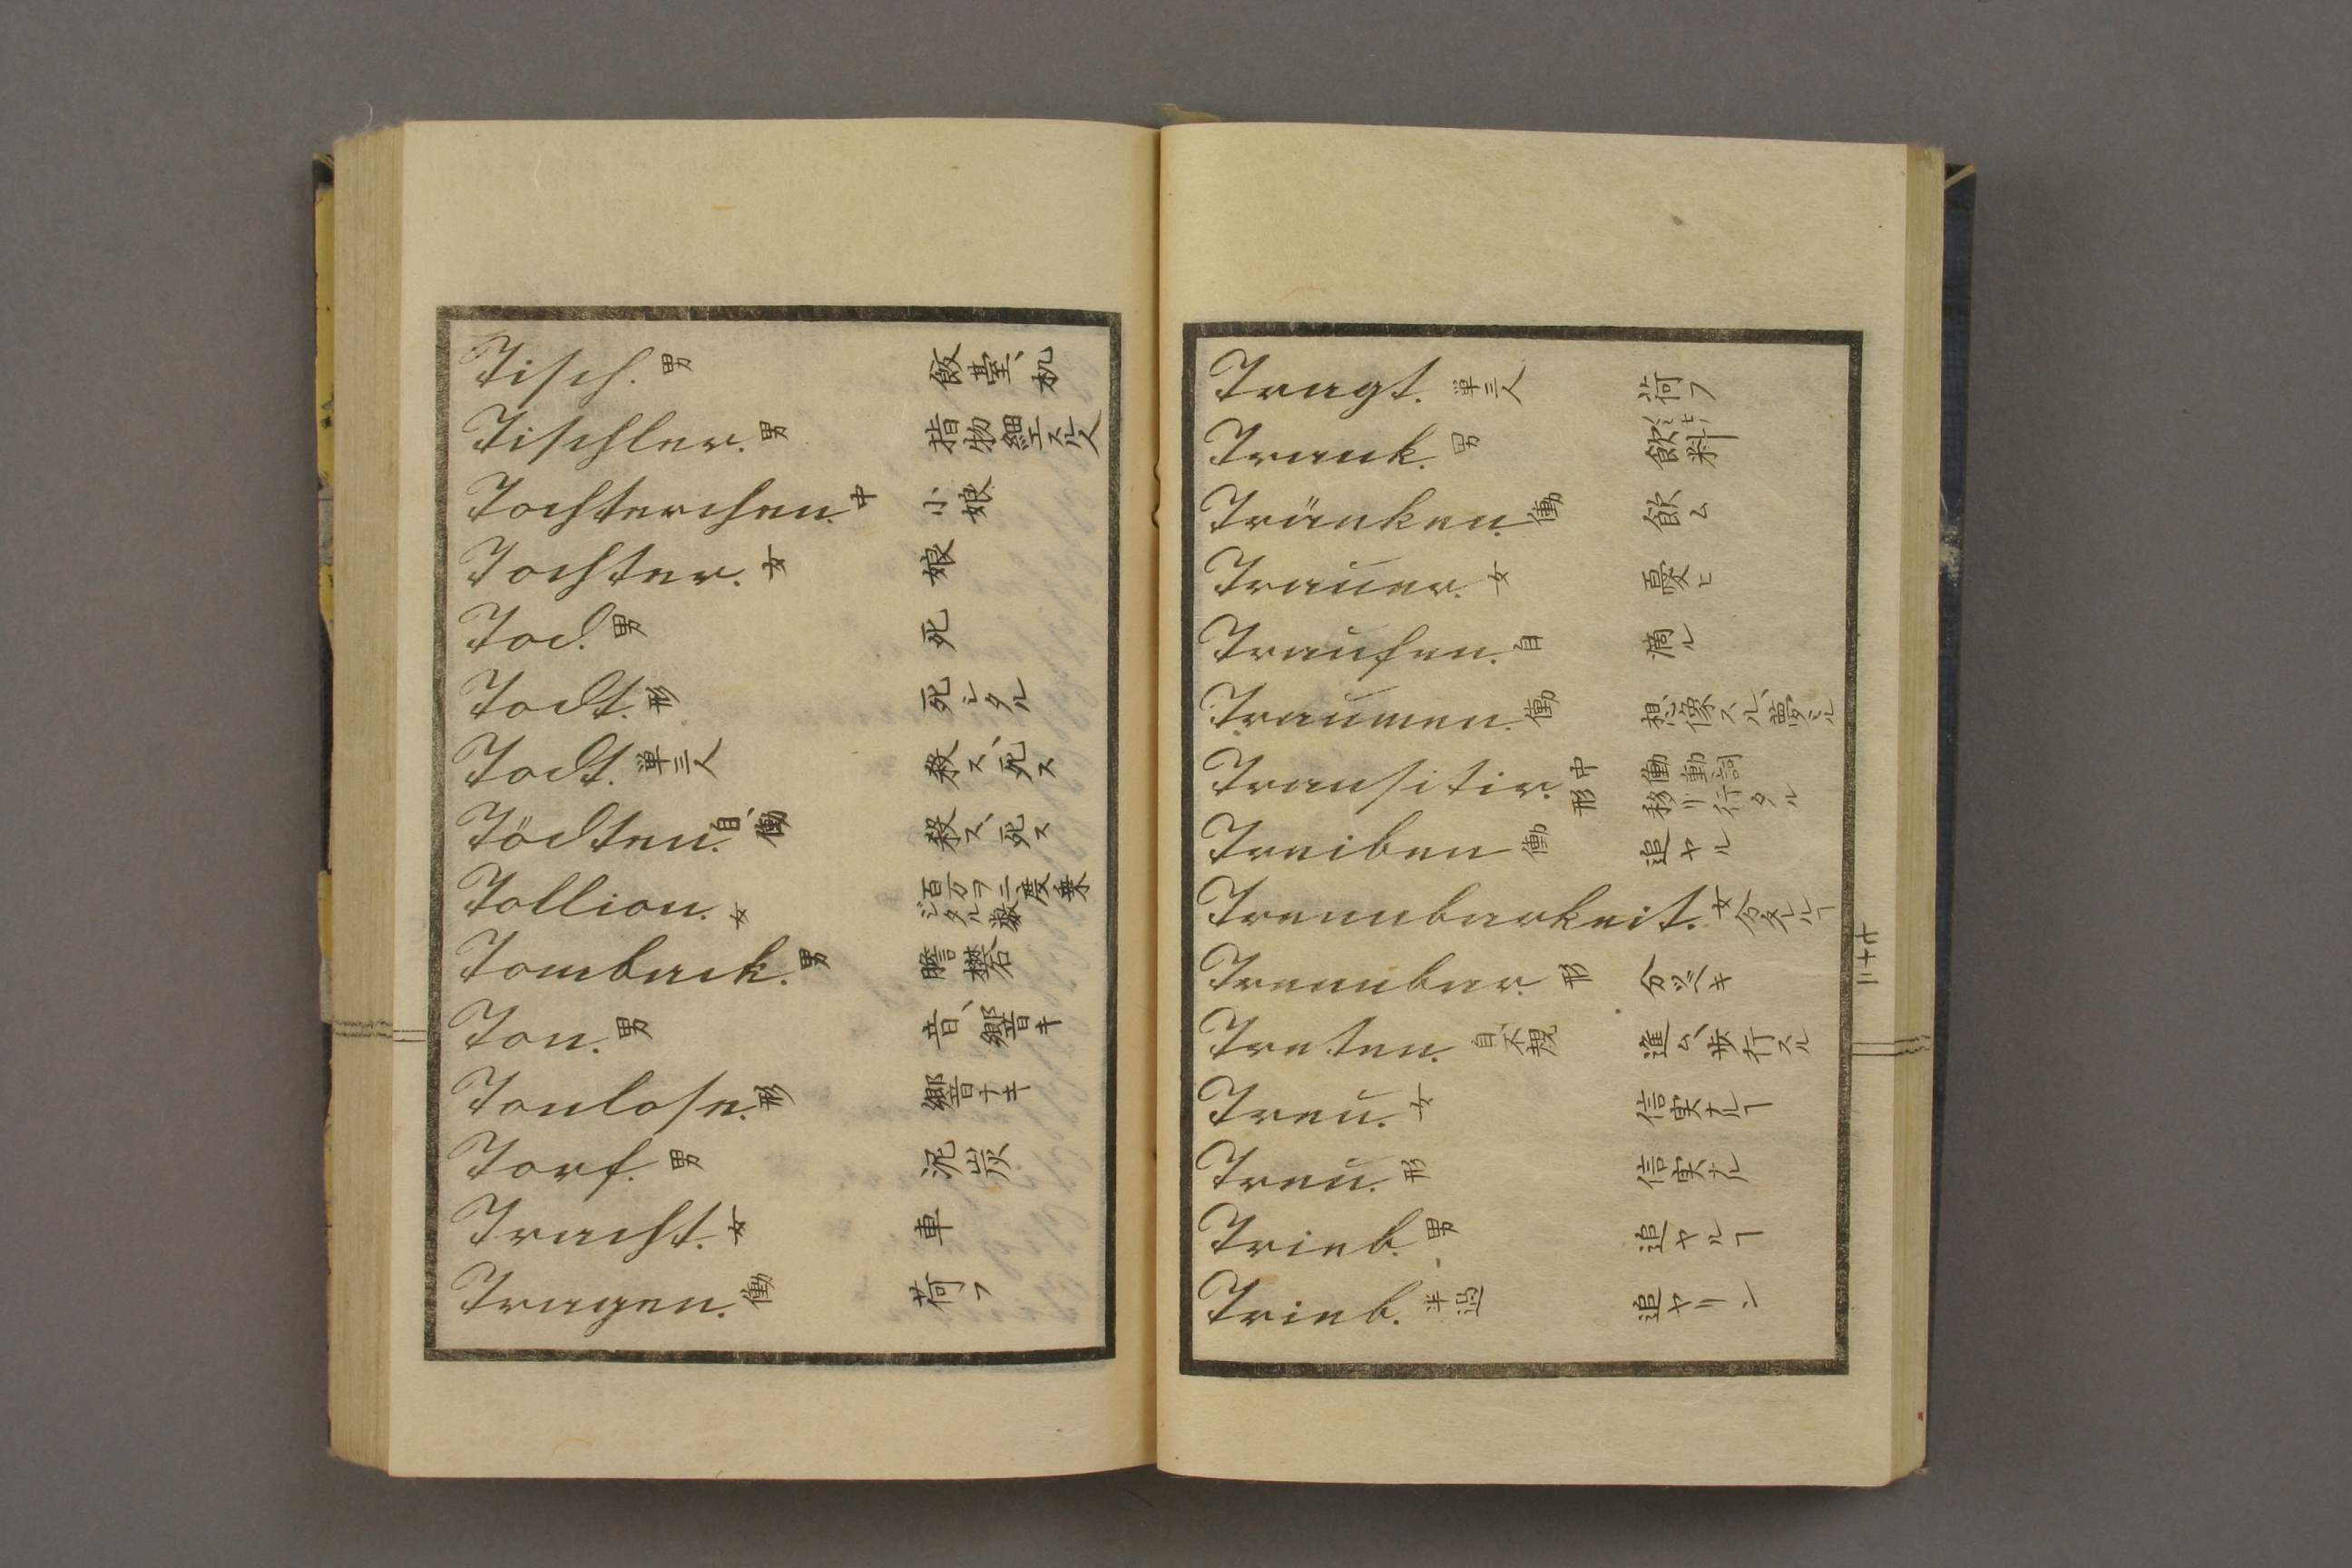 Tisch. 男 飯臺、机
Tischler. 男 指物細工スル人
Tochterchen. 中 小娘
Tochter. 女 娘
Tod. 男 死
Todt. 形 死シタル
Todt. 単三人 殺ス、死ス
Tödten. 自、働 殺ス、死ス
Tollion. 女 百万ヲ三度乗ジタル数
Tomback. 男 膽礬石
Ton. 男 音、響キ
Tonlose. 形 響ナキ
Torf. 男 泥炭
Tracht. 女 車
Tragen. 働 荷フ
Tragt. 単三人 荷フ
Trank. 男 飲料
Tränken. 働 飲ム
Trauer. 女 憂ヒ
Traufen. 自 滴ル
Traumen. 働 想像スル、夢ミル
Transitiv. 中 働動詞
形 移リ行タル
Treiben 働 追ヤル
Trennbarkeit. 女 分タルヿ
Trennbar. 形 分ツベキ
Treten. 自、不規 進ム、歩行スル
Treu. 女 信実ナルヿ
Treu. 形 信実ナル
Trieb. 男 追ヤルヿ
Trieb. 半過 追ヤリシ
二十七